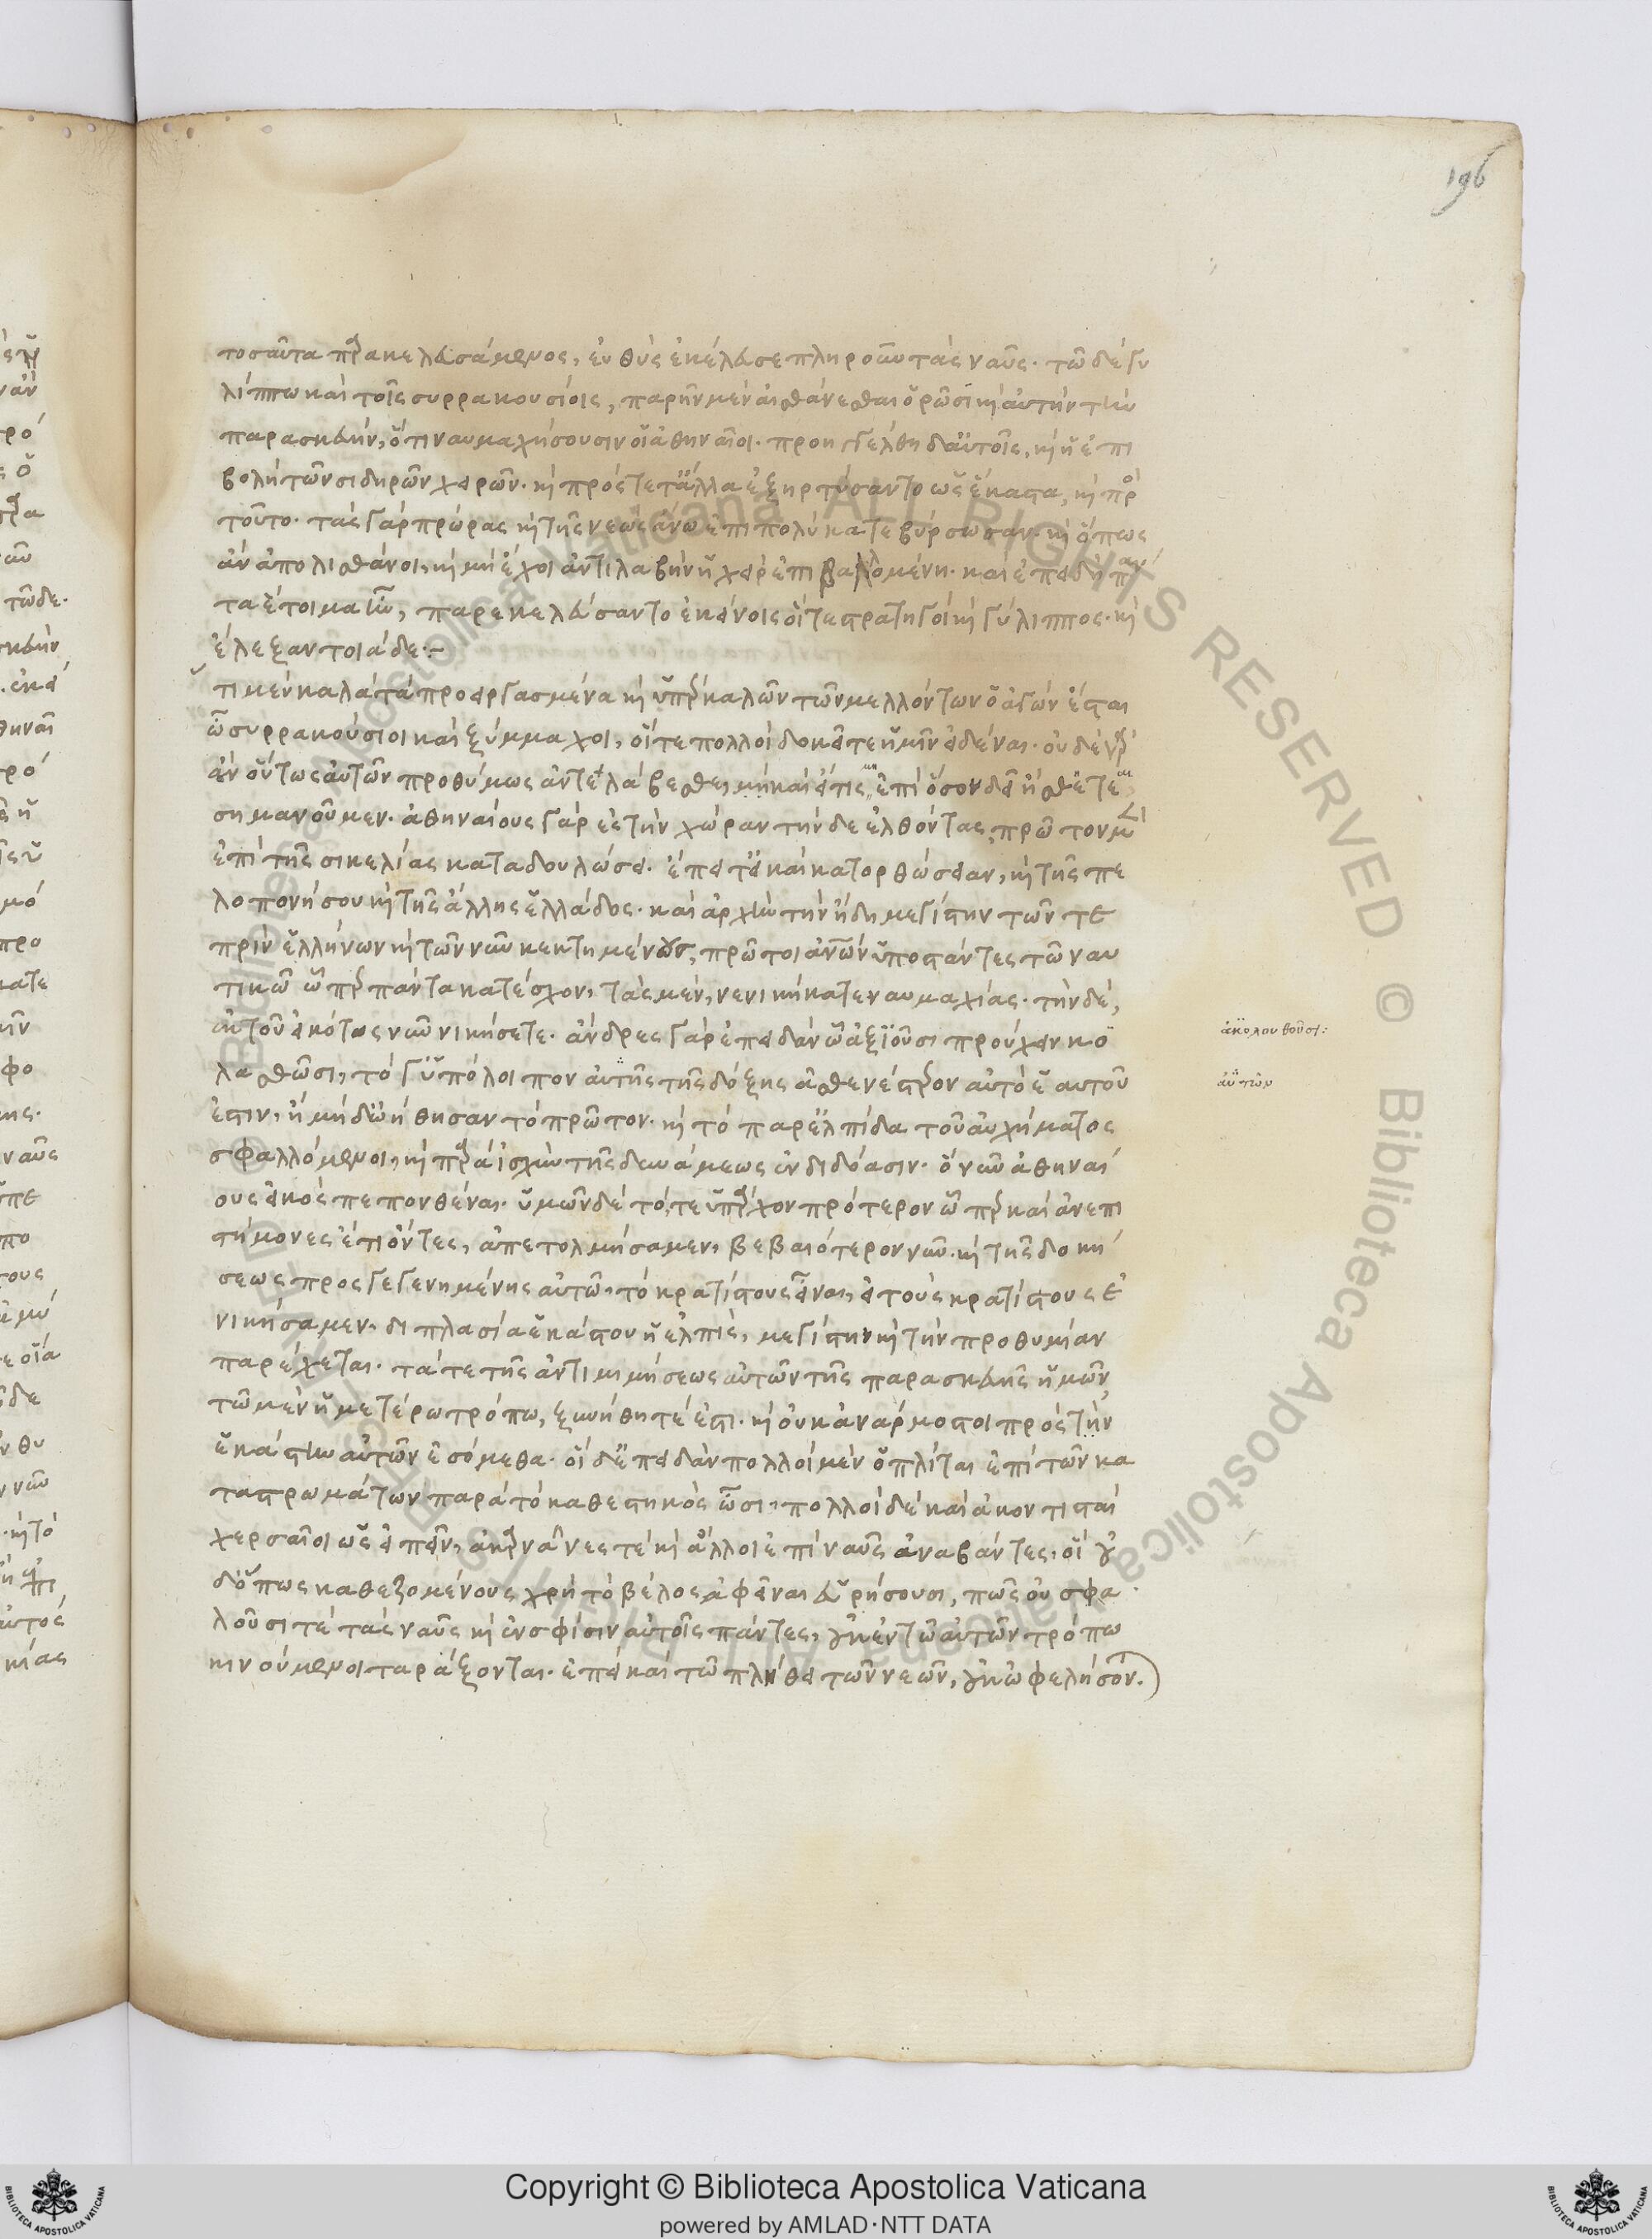 196
τοσαῦτα παρακελευσάμενος, εὐθὺς ἐκέλευσε πληροῦν τὰς ναῦς· τῶ δὲ γυ
λίππω καὶ τοῖς συρρακουσίοις, παρῆν μὲν αἰσθάνεσθαι ὁρῶσι καὶ αὐτὴν τὴν
παρασκευὴν, ὅτι ναυμαχήσουσιν οἱ ἀθηναῖοι· προηγγέλθη δ' αὐτοῖς, καὶ ἡ ἐπι
βολὴ τῶν σιδηρῶν χειρῶν· καὶ πρός τε τἄλλα ἐξηρτύσαντο ὡς ἕκαστα, καὶ πρὸς
τοῦτο· τὰς γὰρ πρώρας καὶ τῆς νεὼς ἄνω ἐπιπολὺ κατεβύρσωσαν· καὶ ὅπως
ἂν ἀπολισθάνοι, καὶ μὴ ἔχοι ἀντιλαβὴν ἡ χεὶρ ἐπιβαλλομένη· καὶ ἐπειδὴ πάν
τα ἑτοῖμα ἦν, παρεκελεύσαντο ἐκείνοις οἵ τε στρατηγοὶ καὶ γύλιππος· καὶ
ἔλεξαν τοιάδε:-
ὅτι μὲν καλὰ τὰ προειργασμένα καὶ ὑπὲρ καλῶν τῶν μελλόντων ὁ ἀγὼν ἔσται
ὦ συρρακούσιοι καὶ ξύμμαχοι, οἵ τε πολλοὶ δοκεῖτε ἡμῖν εἰδέναι· οὐδὲ γὰρ
ἂν οὕτως αὐτῶν προθύμως ἀντελάβεσθε, καὶ εἴ τις μὴ ἐπὶ ὅσον δεῖ ἤσθεται
σημανοῦμεν· ἀθηναίους γὰρ ἐς τὴν χώραν τήνδε ἐλθόντας, πρῶτον μὲν
ἐπὶ τῆς σικελίας καταδουλώσει· ἔπειτα εἰ καὶ κατορθώσειαν, καὶ τῆς πε
λοπονήσου καὶ τῆς ἄλλης ἑλλάδος· καὶ ἀρχὴν τὴν ἤδη μεγίστην τῶν τε
πρὶν ἑλλήνων καὶ τῶν νῦν κεκτημένους, πρῶτοι ἀνθρώπων ὑποστάντες τῶ ναυ
τικῶ ὧπερ πάντα κατέσχον, τὰς μὲν, νενικήκατε ναυμαχίας· τὴν δὲ,
αὐτοῦ εἰκότως νῦν νικήσετε· ἄνδρες γὰρ ἐπειδὰν ὧ ἀξιοῦσι προύχειν κο
λασθῶσι, τό γ' ὑπόλοιπον αὐτῆς τῆς δόξης ἀσθενέστερον αὐτὸ ἑαυτοῦ
ἐστιν, ἢ μὴ δ' ὠήθησαν τὸ πρῶτον· καὶ τὸ παρ' ἐλπίδα τοῦ αὐχήματος
σφαλλόμενοι, καὶ παρὰ ἰσχὺν τῆς δυνάμεως ἐνδιδόασιν· ὃ νῦν ἀθηναί
ους εἰκὸς πεπονθέναι· ὑμῶν δὲ τό, τε ὑπάρχον πρότερον ὧπερ καὶ ἀνεπι
στήμονες ἔτι ὄντες, ἀπετολμήσαμεν, βεβαιότερον νῦν· καὶ τῆς δοκή
σεως προσγεγενημένης αὐτῶ, τὸ κρατίστους εἶναι, εἰ τοὺς κρατίστους ἐ
νικήσαμεν, διπλασία ἑκάστου ἡ ἐλπὶς, μεγίστην καὶ τὴν προθυμίαν
παρέχεται· τά τε τῆς ἀντιμιμήσεως αὐτῶν τῆς παρασκευῆς ἡμῶν,
τῶ μὲν ἡμετέρω τρόπω, ξυνήθη τέ ἐστι· καὶ οὐκ ἀνάρμοστοι πρὸς τὴν
ἑκάστην αὐτῶν ἐσόμεθα· οἱ δ' ἐπειδὰν πολλοὶ μὲν ὁπλῖται ἐπὶ τῶν κα
ταστρωμάτων παρὰ τὸ καθεστηκὸς ὦσι, πολλοὶ δὲ καὶ ἀκοντισταὶ
χερσαῖοι ὡς εἰπεῖν, ἀκαρνᾶνές τε καὶ ἄλλοι ἐπὶ ναῦς ἀναβάντες, οἳ οὐ
δ' ὅπως καθεζομένους χρὴ τὸ βέλος ἀφεῖναι εὑρήσουσι, πῶς οὐ σφα
λοῦσί τε τὰς ναῦς καὶ ἐν σφίσιν αὐτοῖς πάντες, οὐκ ἐν τῶ αὐτῶν τρόπω
κινούμενοι ταράξονται· ἐπεὶ καὶ τῶ πλήθει τῶν νεῶν, οὐκ ὠφελήσονται.
ἀκολουθοῦσι:
αὐτῶν